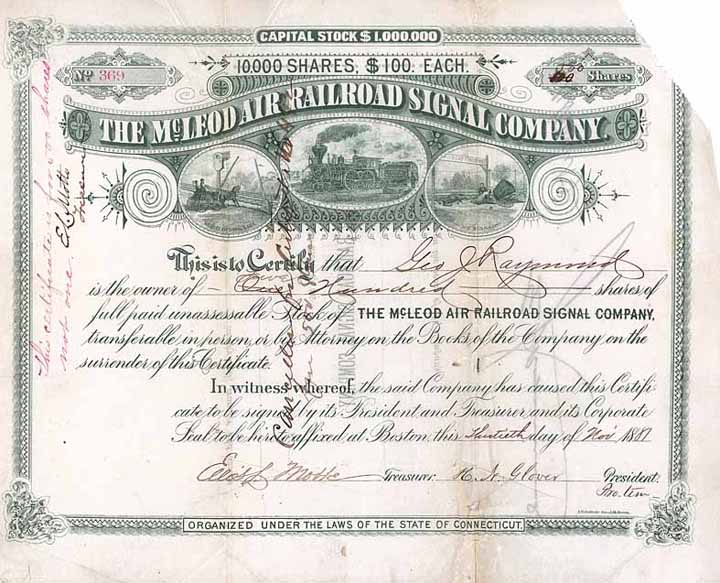 CAPITAL STOCK $1,000,000
10,000 SHARES, $100. EACH.
No 369
Shares
THE McLEOD AIR RAILROAD SIGNAL COMPANY.
This is to Certify that Geo J. Raymond
is the owner of One Hundred shares of
full paid unassessable Stock of THE McLEOD AIR RAILROAD SIGNAL COMPANY,
transferable in person, or by Attorney on the Books of the Company on the
surrender of this Certificate.
In witness whereof, the said Company has caused this Certifi-
cate to be signed by its President and Treasurer, and its Corporate
Seal to be hereto affixed at Boston, this Thirtieth day of Nov 1887
Treasurer. H. N. Glover President.
Pro. tem
ORGANIZED UNDER THE LAWS OF THE STATE OF CONNECTICUT.
This certificate is for 500 shares
not one.